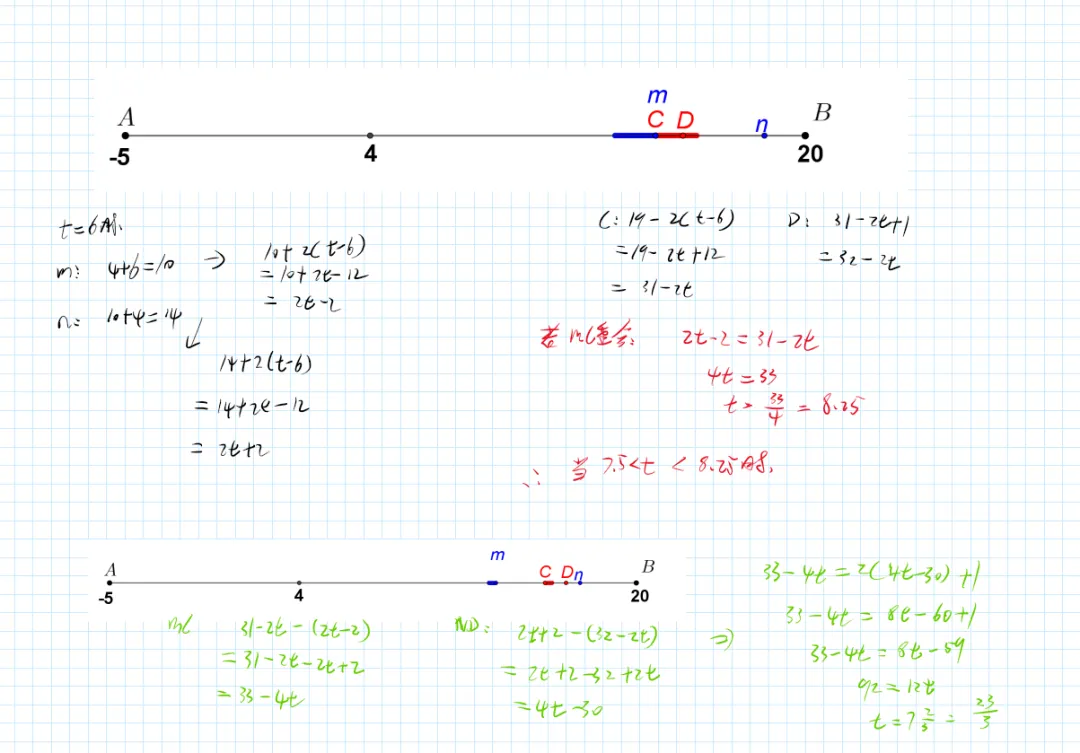 m
A C D n B
-5 4 20
t=6时,
m: 4+6=10 → 10+2(t-6)
=10+2t-12
= 2t-2
n: 10+4=14
14+2(t-6)
=14+2t-12
= 2t+2
C: 19-2(t-6)
=19-2t+12
= 31-2t
D: 31-2t+1
=32-2t
若MC重合: 2t-2=31-2t
4t=33
t= 33/4 = 8.25
∴ 当 7.5<t<8.25时,
m
A C D n B
-5 4 20
MC 31-2t-(2t-2)
=31-2t-2t+2
=33-4t
ND: 2t+2-(32-2t)
= 2t+2-32+2t
=4t-30
⇒ 33-4t=2(4t-30)+1
33-4t=8t-60+1
33-4t=8t-59
92=12t
t=7 2/3 = 23/3